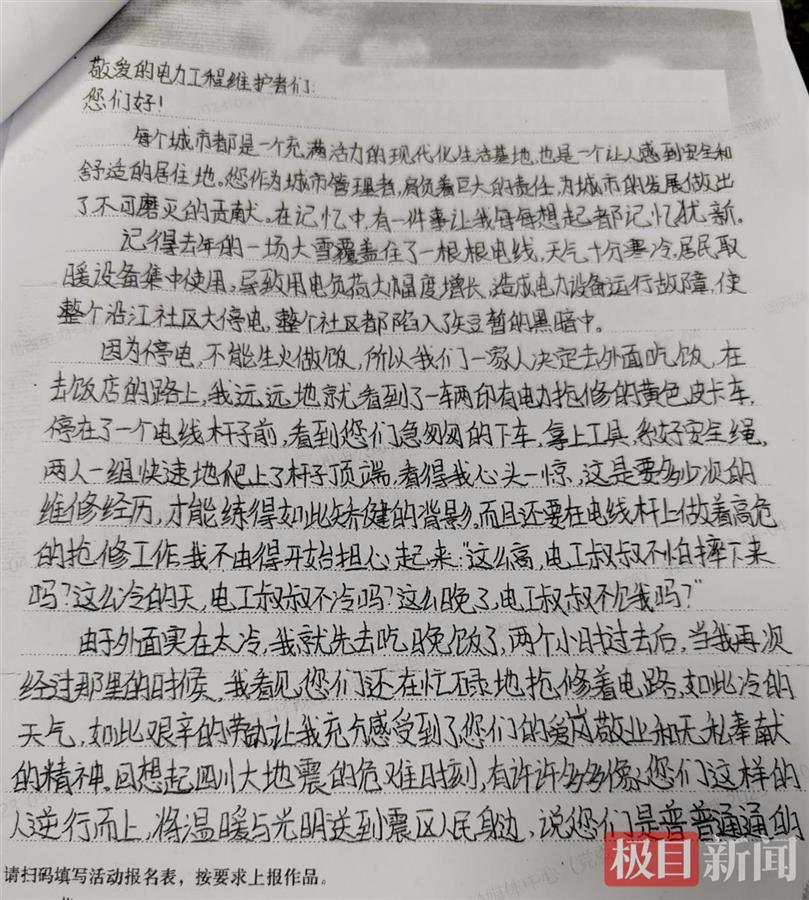 敬爱的电力工程维护者们:
您们好!
每个城市都是一个充满活力的现代化生活基地,也是一个让人感到安全和
舒适的居住地。您作为城市管理者,肩负着巨大的责任,为城市的发展做出
了不可磨灭的贡献。在记忆中,有一件事让我每每想起都记忆犹新。
记得去年的一场大雪覆盖住了一根根电线,天气十分寒冷,居民取
暖设备集中使用,导致用电负荷大幅度增长,造成电力设备运行故障,使
整个沿江社区大停电,整个社区都陷入了短暂的黑暗中。
因为停电,不能生火做饭,所以我们一家人决定去外面吃饭,在
去饭店的路上,我远远地就看到了一辆印有电力抢修的黄色皮卡车,
停在了一个电线杆子前,看到您们急匆匆的下车,拿上工具,系好安全绳,
两人一组快速地爬上了杆子顶端,看得我心头一惊,这是要多少次的
维修经历,才能练得如此矫健的背影,而且还要在电线杆上做着高危
的抢修工作,我不由得开始担心起来:“这么高,电工叔叔不怕摔下来
吗?这么冷的天,电工叔叔不冷吗?这么晚了,电工叔叔不饿吗?”
由于外面实在太冷,我就先去吃晚饭了,两个小时过去后,当我再次
经过那里的时候,我看见您们还在忙碌地抢修着电路,如此冷的
天气,如此艰辛的劳动让我充分感受到了您们的爱岗敬业和无私奉献
的精神。回想起四川大地震的危难时刻,有许许多多像您们这样的
人逆行而上,将温暖与光明送到震区人民身边,说您们是普普通通的
请扫码填写活动报名表,按要求上报作品。
极目新闻